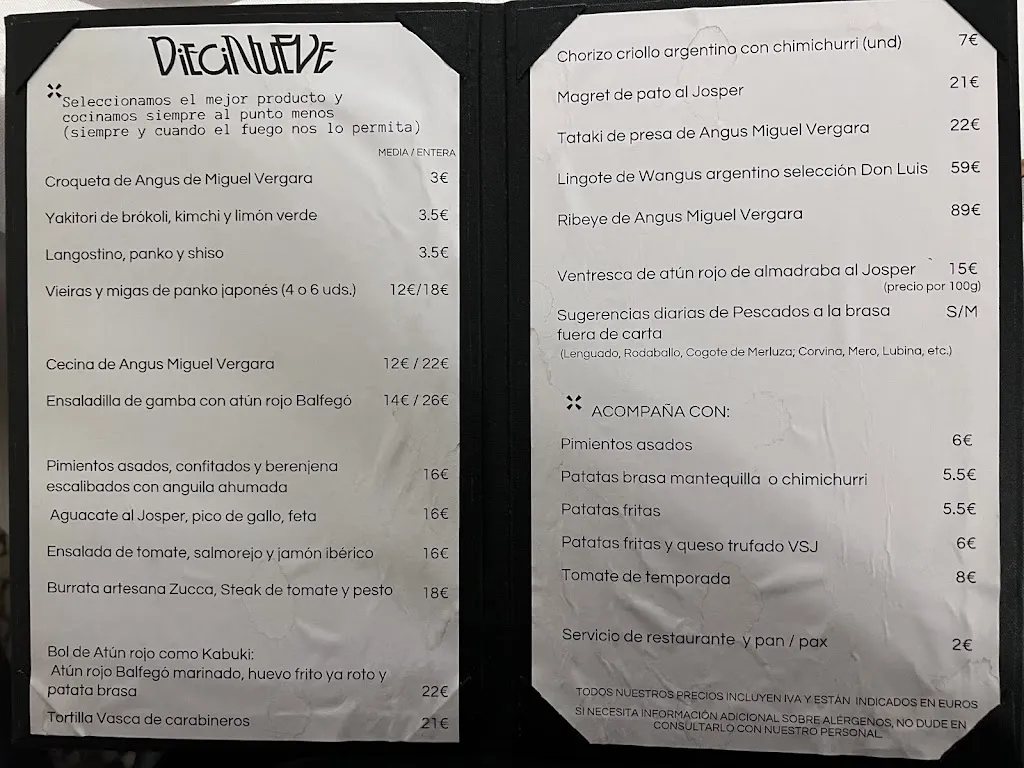 DiECiNUEVE
Seleccionamos el mejor producto y
cocinamos siempre al punto menos
(siempre y cuando el fuego nos lo permita)
MEDIA / ENTERA
Croqueta de Angus de Miguel Vergara 3€
Yakitori de brókoli, kimchi y limón verde 3.5€
Langostino, panko y shiso 3.5€
Vieiras y migas de panko japonés (4 o 6 uds.) 12€/18€
Cecina de Angus Miguel Vergara 12€ / 22€
Ensaladilla de gamba con atún rojo Balfegó 14€ / 26€
Pimientos asados, confitados y berenjena
escalibados con anguila ahumada 16€
Aguacate al Josper, pico de gallo, feta 16€
Ensalada de tomate, salmorejo y jamón ibérico 16€
Burrata artesana Zucca, Steak de tomate y pesto 18€
Bol de Atún rojo como Kabuki:
Atún rojo Balfegó marinado, huevo frito ya roto y
patata brasa 22€
Tortilla Vasca de carabineros 21€
Chorizo criollo argentino con chimichurri (und) 7€
Magret de pato al Josper 21€
Tataki de presa de Angus Miguel Vergara 22€
Lingote de Wangus argentino selección Don Luis 59€
Ribeye de Angus Miguel Vergara 89€
Ventresca de atún rojo de almadraba al Josper 15€
(precio por 100g)
Sugerencias diarias de Pescados a la brasa S/M
fuera de carta
(Lenguado, Rodaballo, Cogote de Merluza; Corvina, Mero, Lubina, etc.)
ACOMPAÑA CON:
Pimientos asados 6€
Patatas brasa mantequilla o chimichurri 5.5€
Patatas fritas 5.5€
Patatas fritas y queso trufado VSJ 6€
Tomate de temporada 8€
Servicio de restaurante y pan / pax 2€
TODOS NUESTROS PRECIOS INCLUYEN IVA Y ESTÁN INDICADOS EN EUROS
SI NECESITA INFORMACIÓN ADICIONAL SOBRE ALÉRGENOS, NO DUDE EN
CONSULTARLO CON NUESTRO PERSONAL.